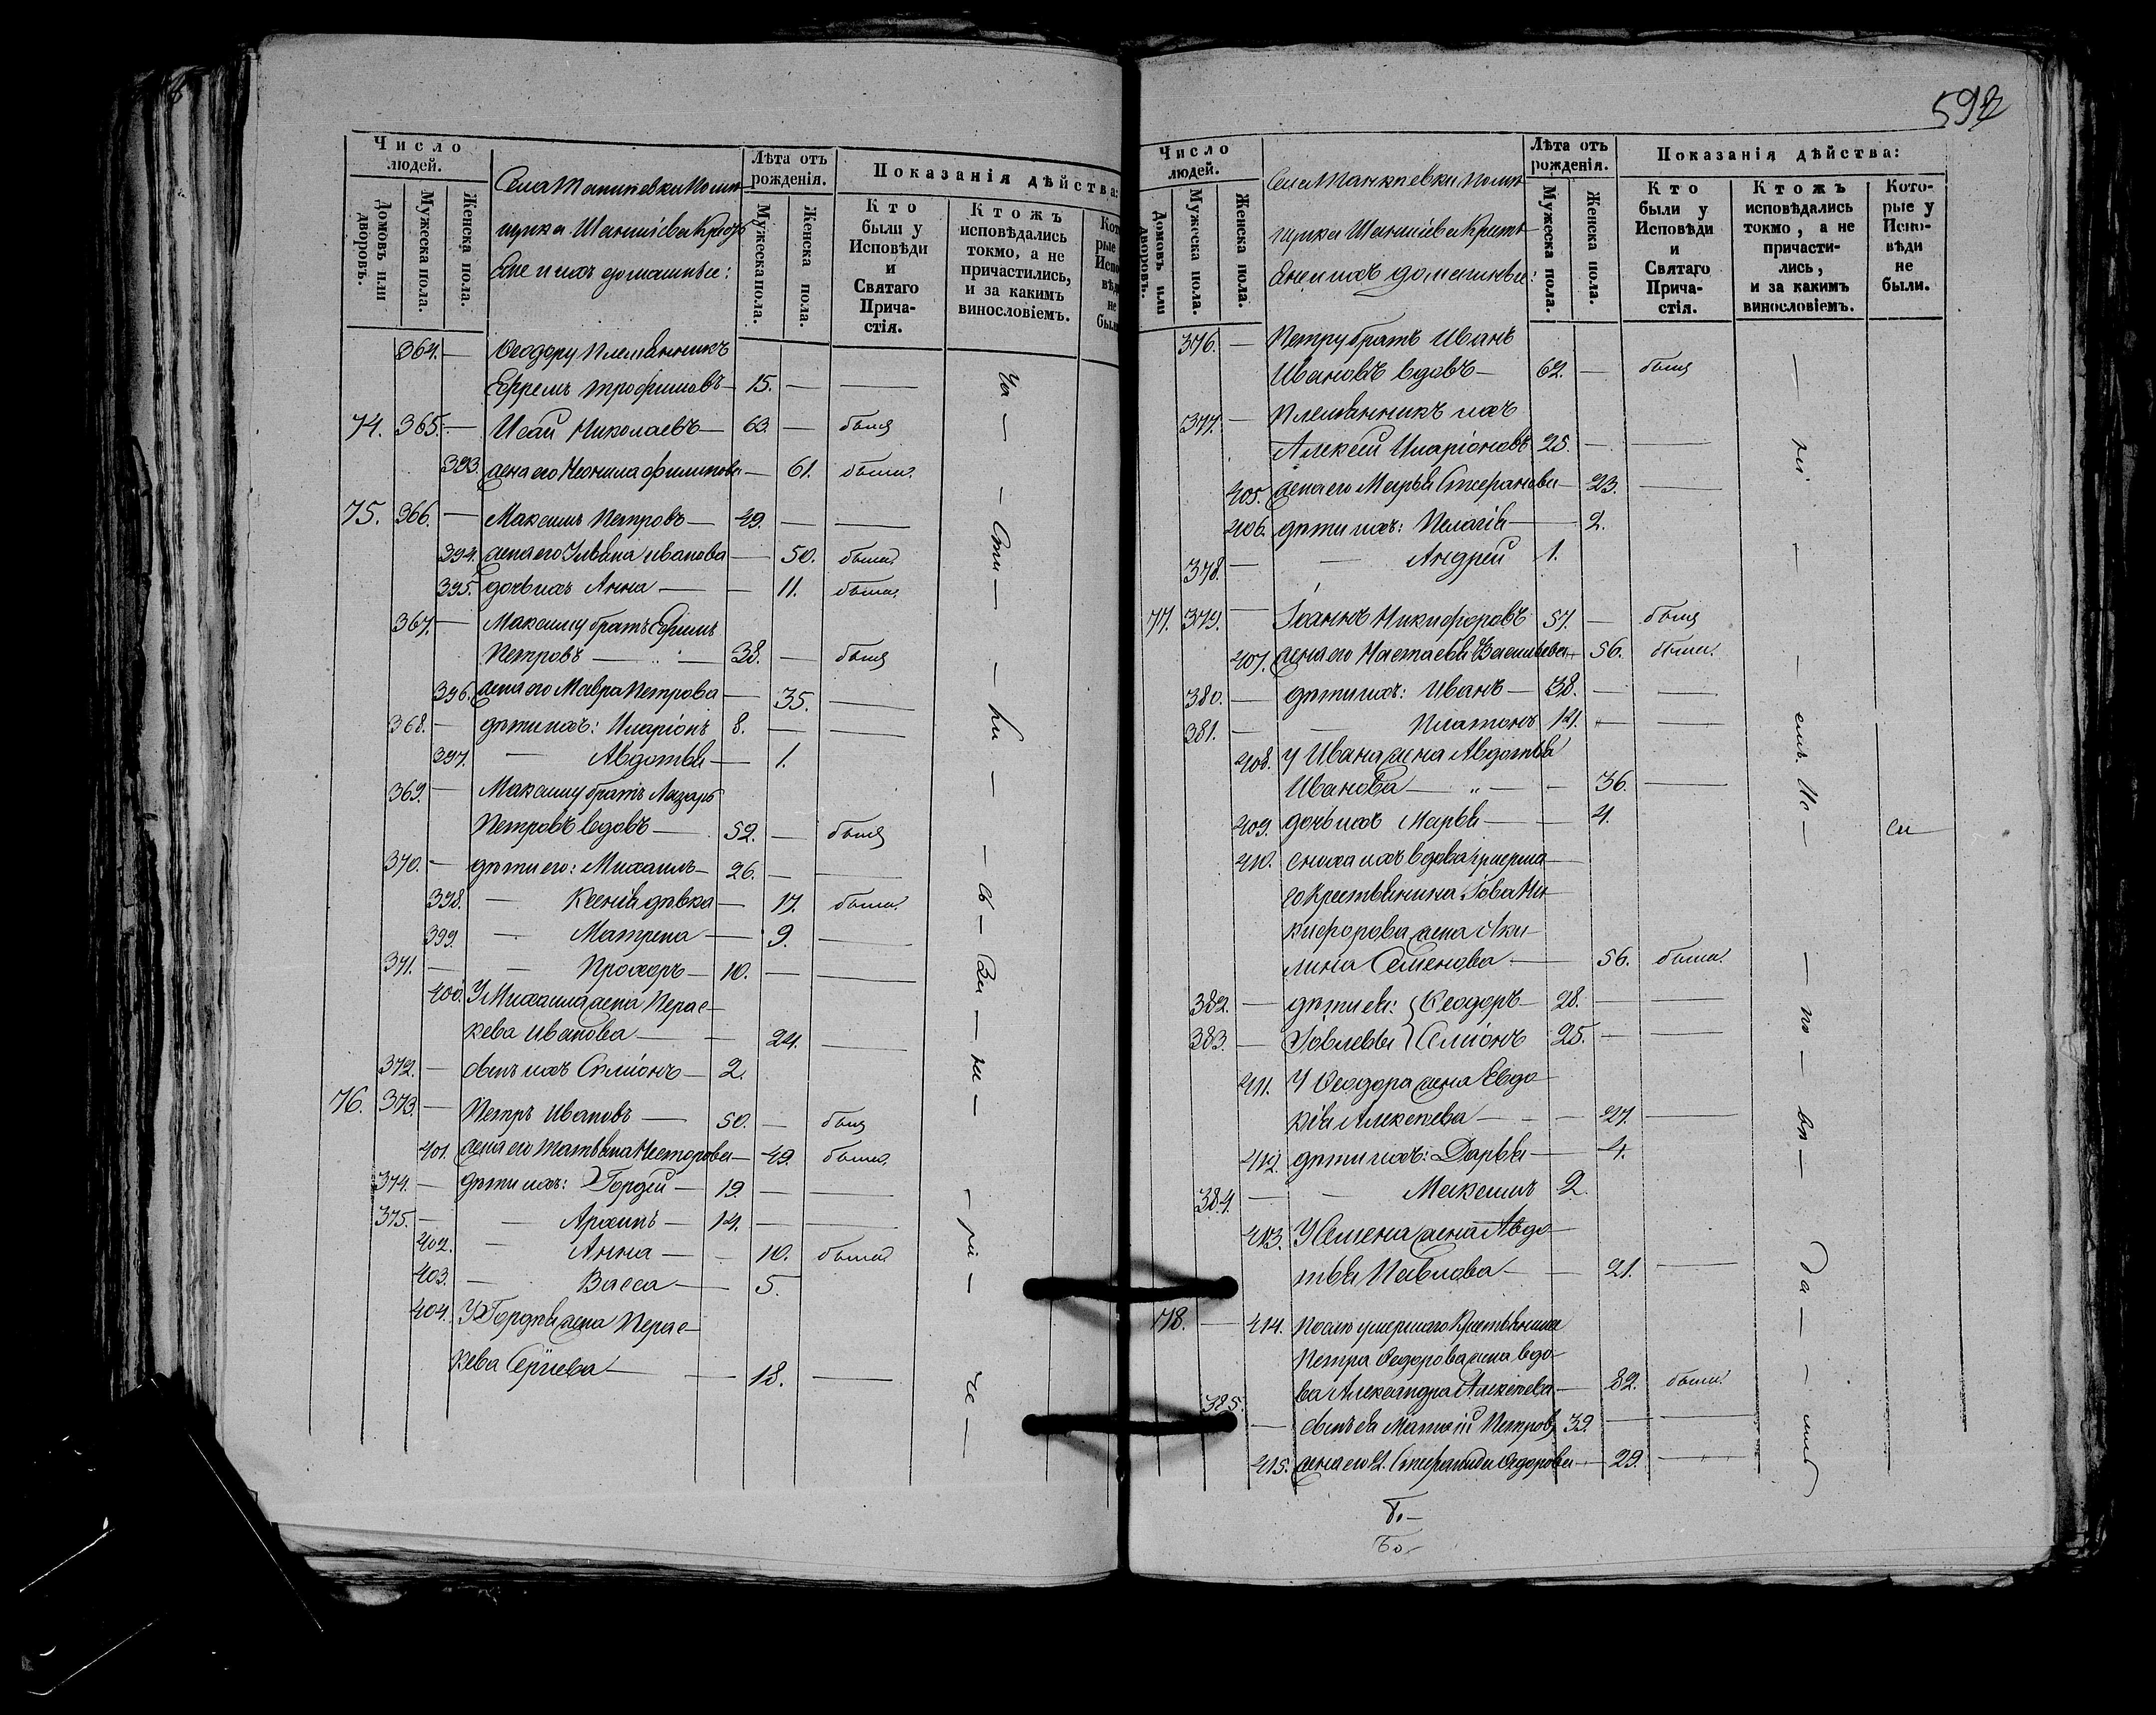 Число людей.
Домовъ или дворовъ.
Мужеска пола.
Женска пола.
Лѣта отъ рожденія.
Мужеска пола.
Женска пола.
Показанія дѣйства:
Кто были у Исповѣди и Святаго Причастія.
Ктожъ исповѣдались токмо, а не причастились, и за какимъ винословіемъ.
Ене и ихъ домашные:
364. — Ѳеодору племянникъ
Ефремъ Трофимовъ — 15. — —
74. 365. — Исай Николаевъ — 63. — былъ
393. жена его Неонила Филипова — 61. была.
75. 366. — Максимъ Петровъ — 49. — —
394. жена его Ульяна Иванова — 50. была
395. дочь ихъ Анна — — 11. была.
367. — Максиму братъ Ефимъ
Петровъ — 38. — былъ
396. жена его Мавра Петрова — 35. —
368. — дѣти ихъ: Иларіонъ 8. — —
397. — Авдотья — 1.
369. — Максиму братъ Лазарь
Петровъ вдовъ — 52. — былъ
370. — дѣти его: Михаилъ — 26. — —
398. — Ксенія дѣвка — 17. была.
399. — Матрена — 9. —
371. — — Прохоръ — 10. — —
400. У Михаила жена Парас-
кева Иванова — — 24. —
372. — сынъ ихъ Симіонъ — 2.
76. 373. — Петръ Ивановъ — 50. — былъ
401. жена его Татьяна Несторова — 49. была.
374. — дѣти ихъ: Гордій — 19. — —
375. — — Архипъ — 14. — —
402. — Анна — — 10. была
403. — Васса — — 5.
404. У Гордѣя жена Парас-
кева Сергіева — — 18. —
592
Число людей.
Домовъ или дворовъ.
Мужеска пола.
Женска пола.
Лѣта отъ рожденія.
Мужеска пола.
Женска пола.
Показанія дѣйства:
Кто были у Исповѣди и Святаго Причастія.
Ктожъ исповѣдались токмо, а не причастились, и за какимъ винословіемъ.
Которые у Исповѣди не были.
Ене и ихъ домашные:
376. — Петру братъ Иванъ
Ивановъ вдовъ — 62. — былъ
377. — Племянникъ ихъ
Алексей Иларіоновъ 25. — —
405. жена его Марья Стефанова — 23. —
406. дѣти ихъ: Пелагія — 2.
378. — — Андрей 1.
77. 379. — Іоаннъ Никифоровъ 57. — былъ
407. жена его Настасья Васильева — 56. была.
380. — дѣти ихъ: Иванъ — 38. — —
381. — — Платонъ 14. — —
408. У Ивана жена Авдотья
Иванова — — 36. —
409. дочь ихъ Марья — — 4.
410. сноха ихъ вдова умерша-
го крестьянина Іова Ни-
кифорова жена Аки-
лина Семенова — 56. была.
382. — дѣти ея: Ѳеодоръ — 28. — —
383. — Іовлевы Симіонъ 25. — —
411. У Ѳеодора жена Евдо-
кія Алексеева — — 27. —
412. дѣти ихъ: Дарья — 4.
384. — — Максимъ 2.
413. У Семена жена Авдо-
тья Павлова — — 21. —
78. — 414. Послѣ умершаго крестьянина
Петра Ѳедорова жена вдо-
ва Александра Алексеева — 82. была.
385. — сынъ ея Матвѣй Петровъ 39. — —
415. жена его 2. Стефанида Ѳедорова — 29. —